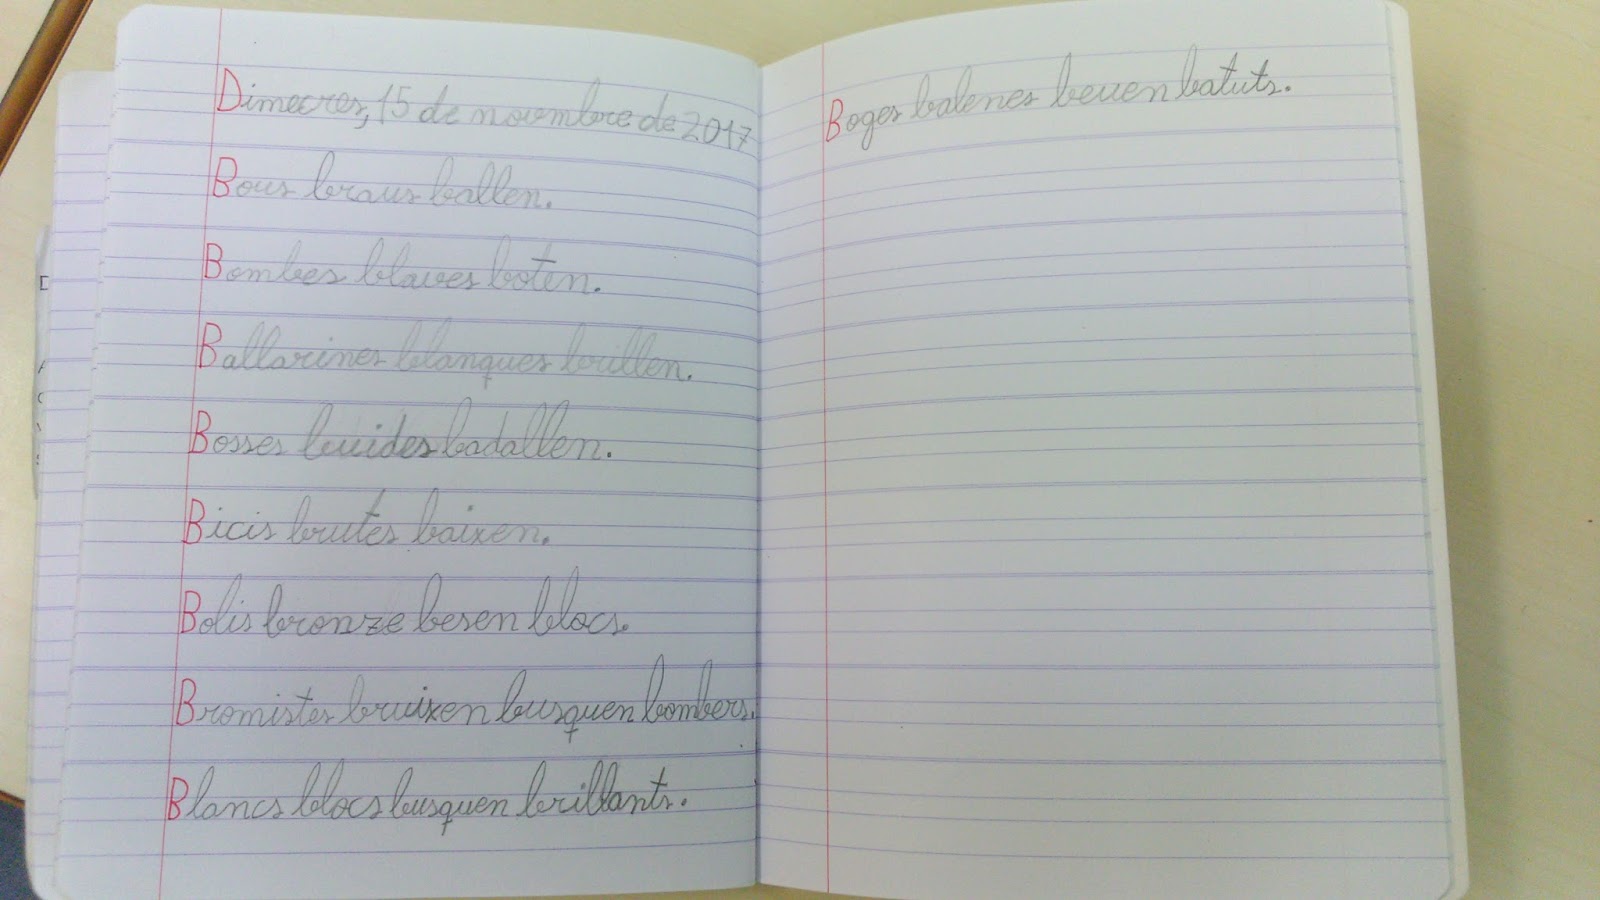 Dimecres, 15 de novembre de 2017
Bous braus ballen.
Bombes blaves boten.
Ballarines blanques brillen.
Bosses buides badallen.
Bicis brutes baixen.
Bolis bronze besen blocs.
Bromistes bruixen busquen bombers.
Blancs blocs busquen brillants.
Boges balenes beuen batuts.